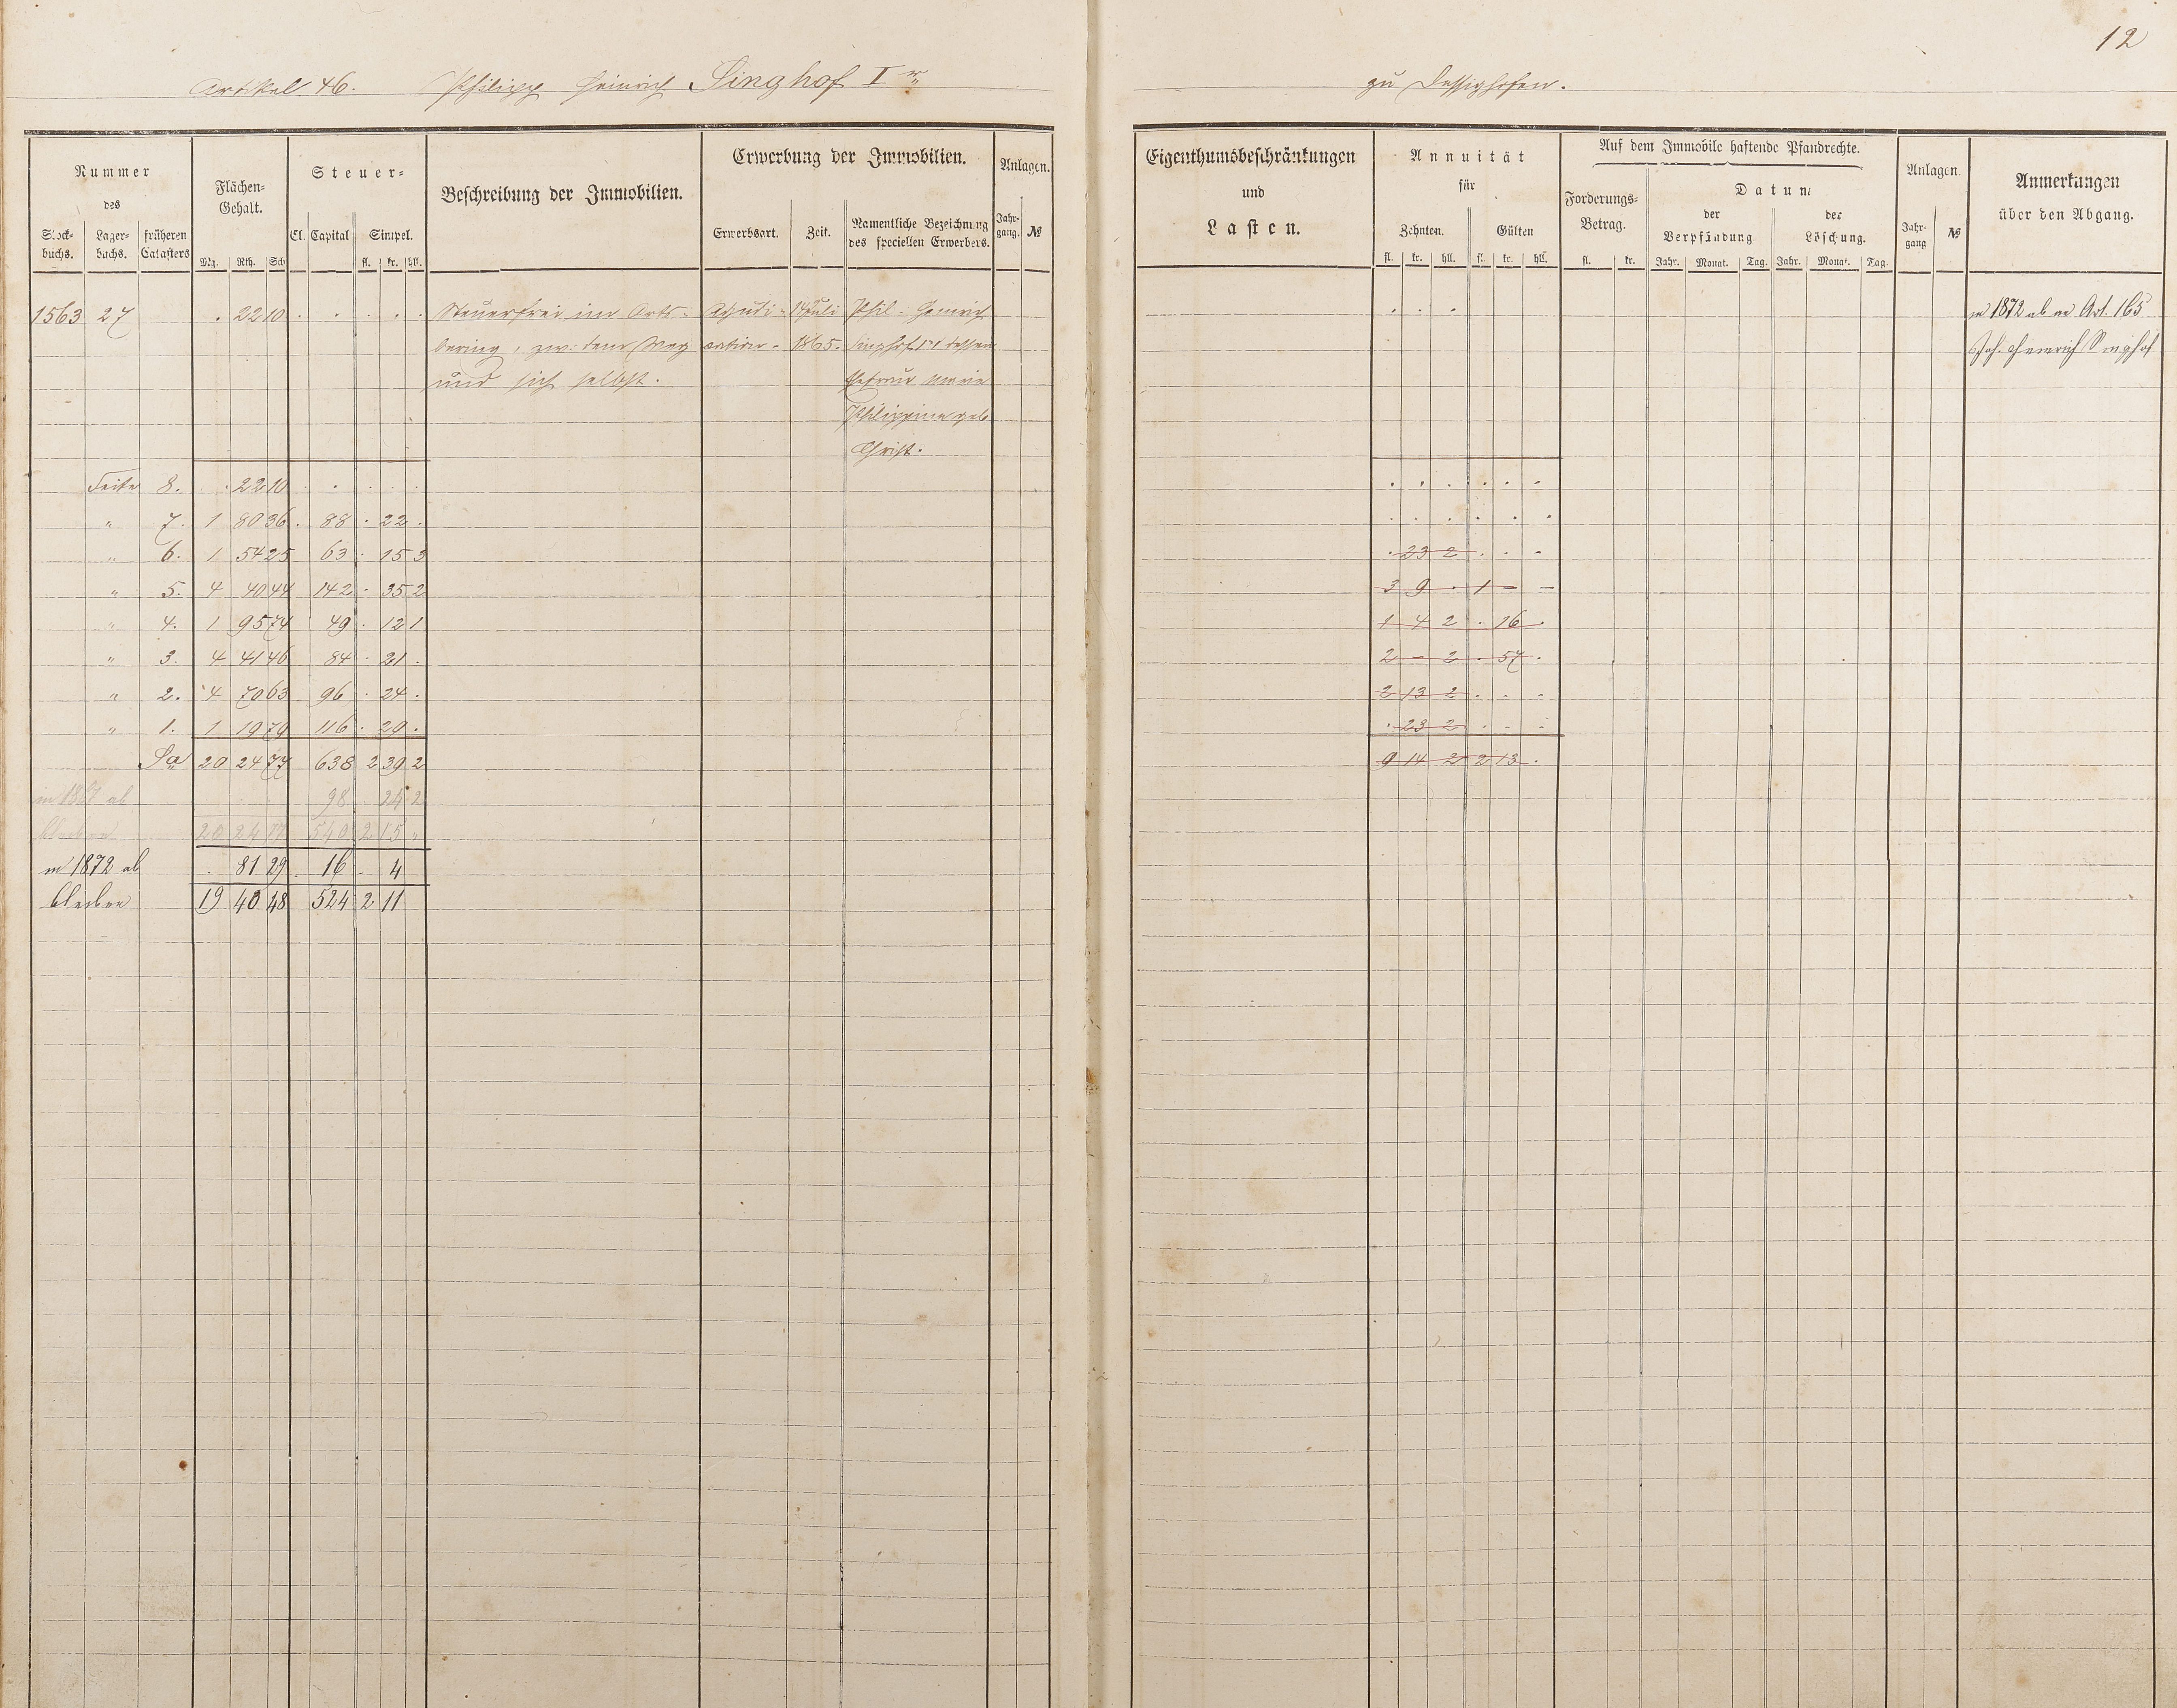 12
Artikel 46. Philipp Heinrich Singhof Ir
zu Dessighofen.
Nummer des
Stockbuchs. Lagerbuchs. früheren Catasters
Flächen-Gehalt.
Mg. Rth. Sch
Steuer-
Cl. Capital Simpel.
fl. kr. hll.
Beschreibung der Immobilien.
Erwerbung der Immobilien.
Erwerbsart. Zeit. Namentliche Bezeichnung des speciellen Erwerbers.
Anlagen.
Jahrgang. №
Eigenthumsbeschränkungen
und
Lasten.
Annuität
für
Zehnten. Gülten
fl. kr. hll. fl. kr. hll.
Auf dem Immobile haftende Pfandrechte.
Forderungs-Betrag.
fl. kr.
Datum
der Verpfändung der Löschung.
Jahr. Monat. Tag. Jahr. Monat. Tag.
Anlagen.
Jahrgang №
Anmerkungen
über den Abgang.
1563 27 . 22 10 . . . . . Steuerfrei im Orts- Adjudi- 14 Juli Phil. Heinrich . . . in 1872 ab an Art. 165
bering, zw: dem Weg cation. 1865. Singhof Ir dessen Joh. Heinrich Singhof
und sich selbst. Ehefrau Marie
Philippine geb
Christ.
Seite 8. . 22 10 . . . . . . . . . .
" 7. 1 80 36 . 88 . 22 . . . . . . .
" 6. 1 54 25 63 . 15 3 . 23 2 . . -
" 5. 4 40 44 142 . 35 2 3 9 . 1 - -
" 4. 1 95 74 49 . 12 1 1 4 2 . 16 .
" 3. 4 41 46 84 . 21 . 2 - 2 . 57 .
" 2. 4 70 63 96 . 24 . 2 13 2 . . -
" 1. 1 19 79 116 . 29 . . 23 2 . . -
Sa 20 24 77 638 2 39 2 9 14 2 2 13 .
in 1867 ab 98 . 24 2
bleiben 20 24 77 540 2 15 "
in 1872 ab . 81 29 . 16 . 4
bleiben 19 40 48 524 2 11